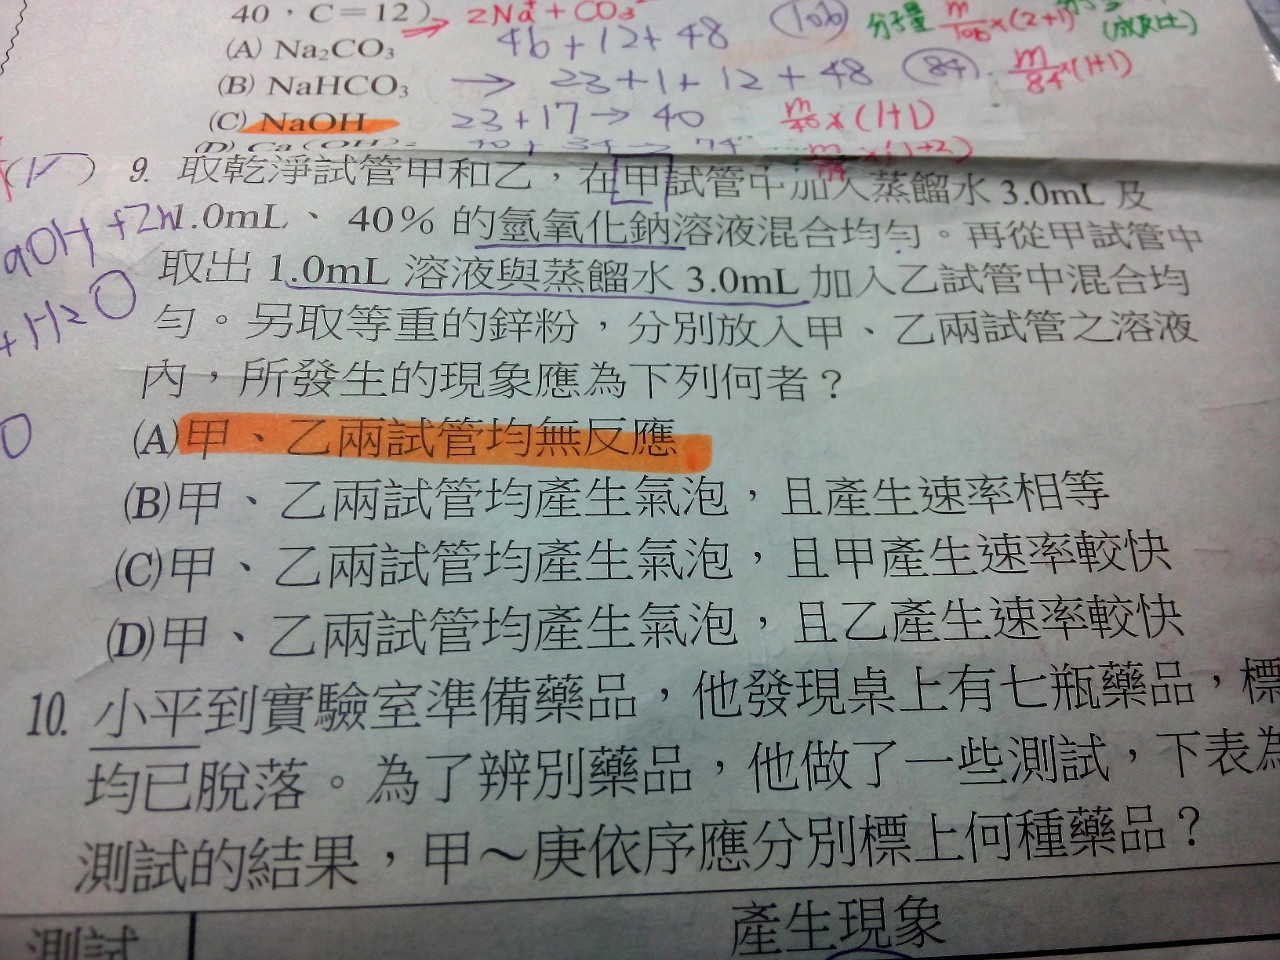 40，C＝12）
2Na⁺ + CO₃
106
分子量 m/106 ×(2+1)
(成反比)
(A) Na₂CO₃
46+12+48
(B) NaHCO₃ → 23+1+12+48 84 m/84 ×(1+1)
(C) NaOH 23+17→ 40 m/40 ×(1+1)
9. 取乾淨試管甲和乙，在甲試管中加入蒸餾水 3.0mL 及
1.0mL、 40% 的氫氧化鈉溶液混合均勻。再從甲試管中
取出 1.0mL 溶液與蒸餾水 3.0mL 加入乙試管中混合均
勻。另取等重的鋅粉，分別放入甲、乙兩試管之溶液
內，所發生的現象應為下列何者？
(A)甲、乙兩試管均無反應
(B)甲、乙兩試管均產生氣泡，且產生速率相等
(C)甲、乙兩試管均產生氣泡，且甲產生速率較快
(D)甲、乙兩試管均產生氣泡，且乙產生速率較快
10. 小平到實驗室準備藥品，他發現桌上有七瓶藥品，標
均已脫落。為了辨別藥品，他做了一些測試，下表為
測試的結果，甲～庚依序應分別標上何種藥品？
測試 產生現象